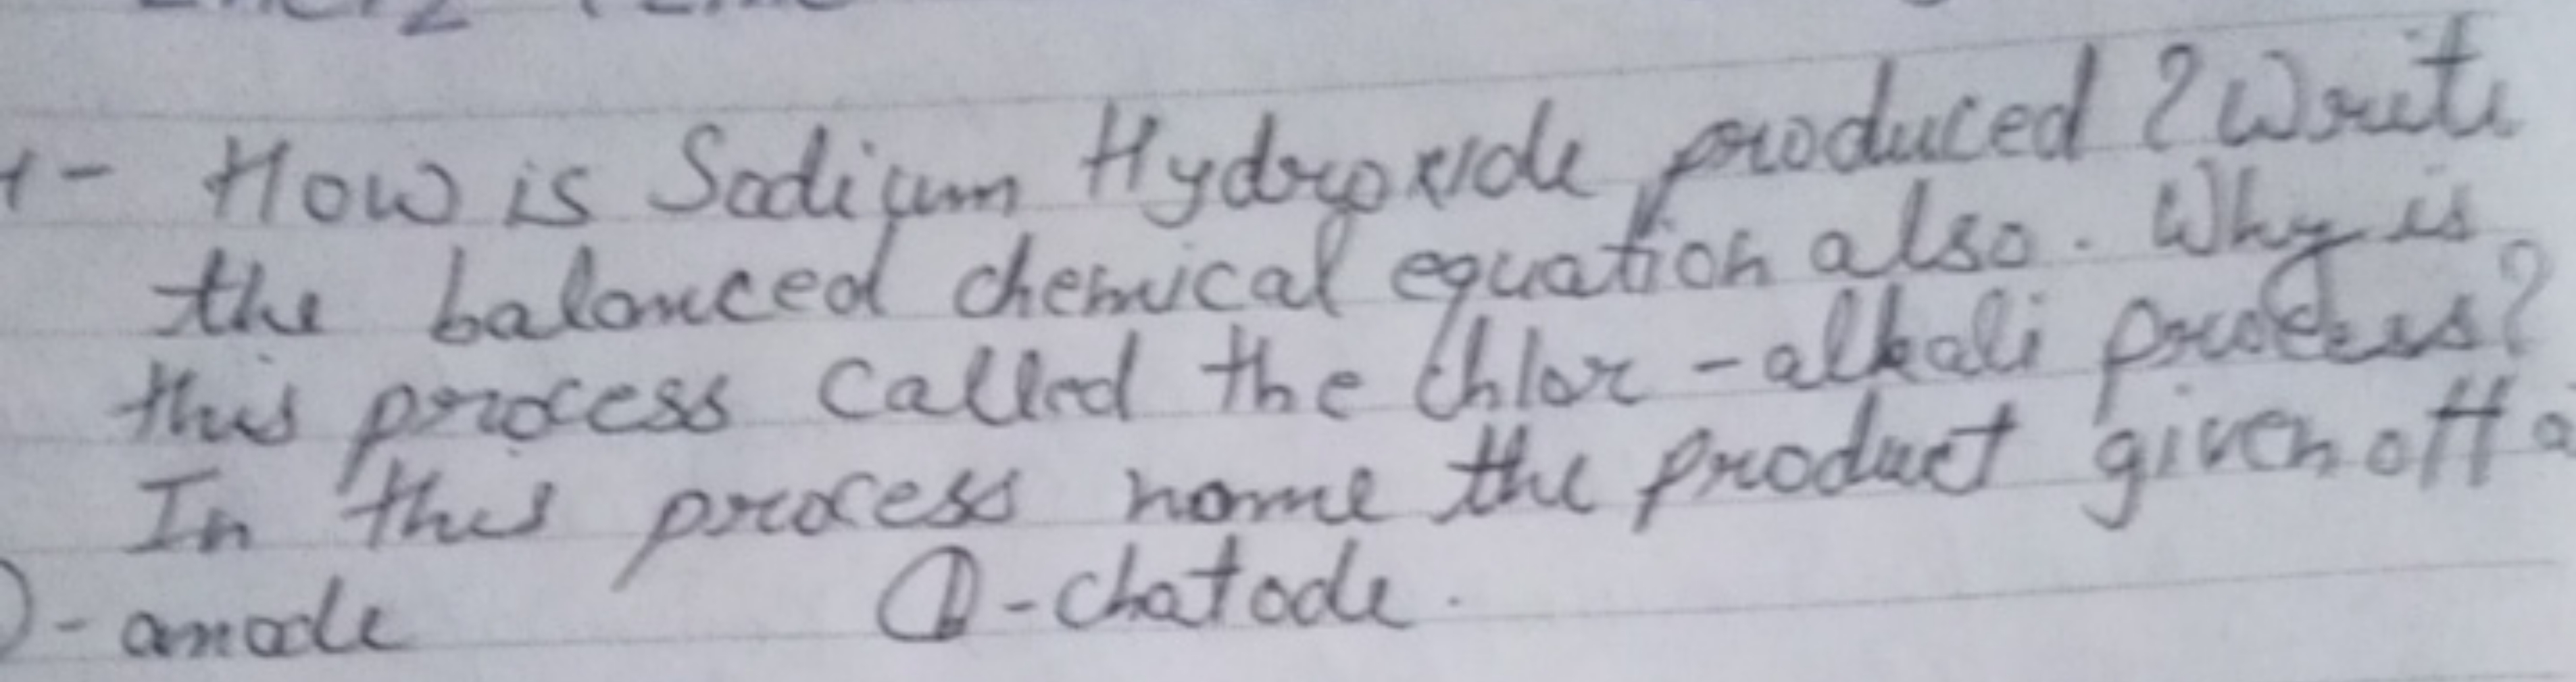 1- How is Sodium Hydroxide produced ? Write
the balanced chemical equation also. Why is
this process called the chlor-alkali process?
In this process name the product given off a
)-anode ①-chatode.